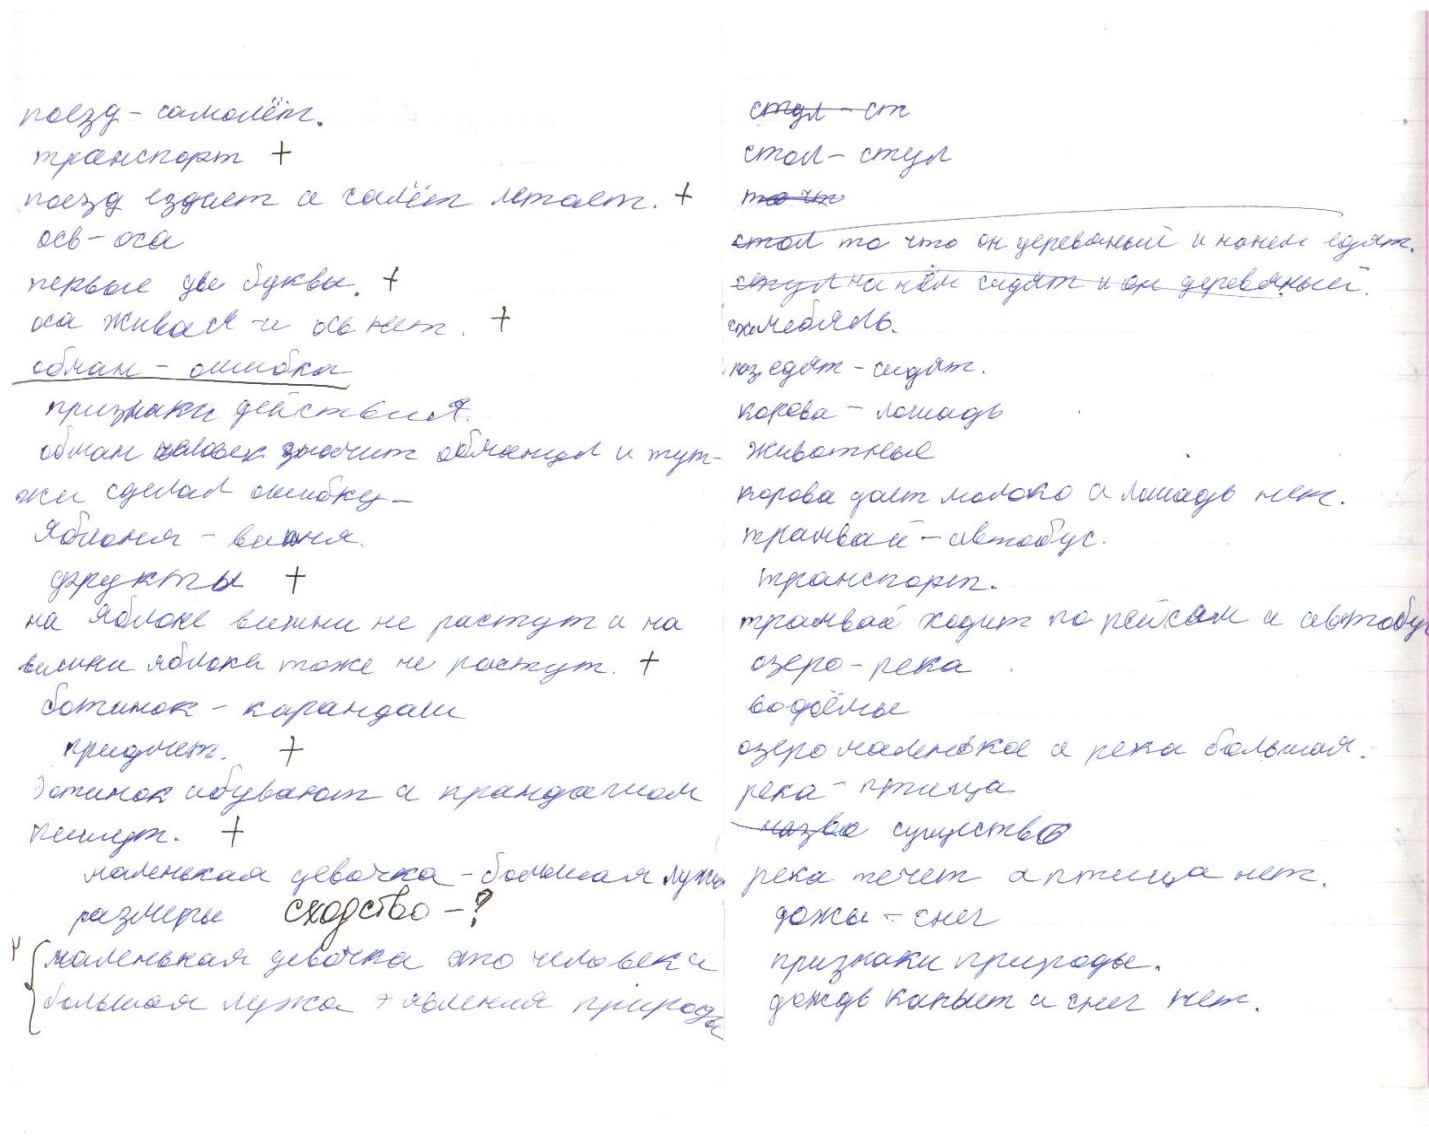 поезд - самолёт.
транспорт +
поезд ездиет а самлёт летает. +
ось - оса
первые две буквы. +
оса живая - и ось нет. +
обман - ошибка
признаки действия.
обман человек значит обманул и тут-
же сделал ошибку-
Яблоня - вишня.
фрукты +
на Яблоне вишни не растут и на
вишни яблока тоже не растут. +
ботинок - карандаш
придмет. +
ботинок обувают а крандашом
пишут. +
маленькая девочка - большая лужа
размеры сходство - ?
маленькая девочка это человек а
большая лужа э явления природы
стул - ст
стол - стул
то чт
стол то что он деревяный и нанем едят.
стул на нём сидят и он деревяный.
мебель.
едят - сидят.
корова - лошадь
животные
корова даёт молоко а лошадь нет.
трамвай - автобус.
транспорт.
трамвай ходит по рейсам а автобу
озеро - река
водоёмы
озеро маленькое а река большая.
река - птица
назва существо
река течет а птица нет.
дожь - снег
признаки природы.
дождь капыет а снег нет.